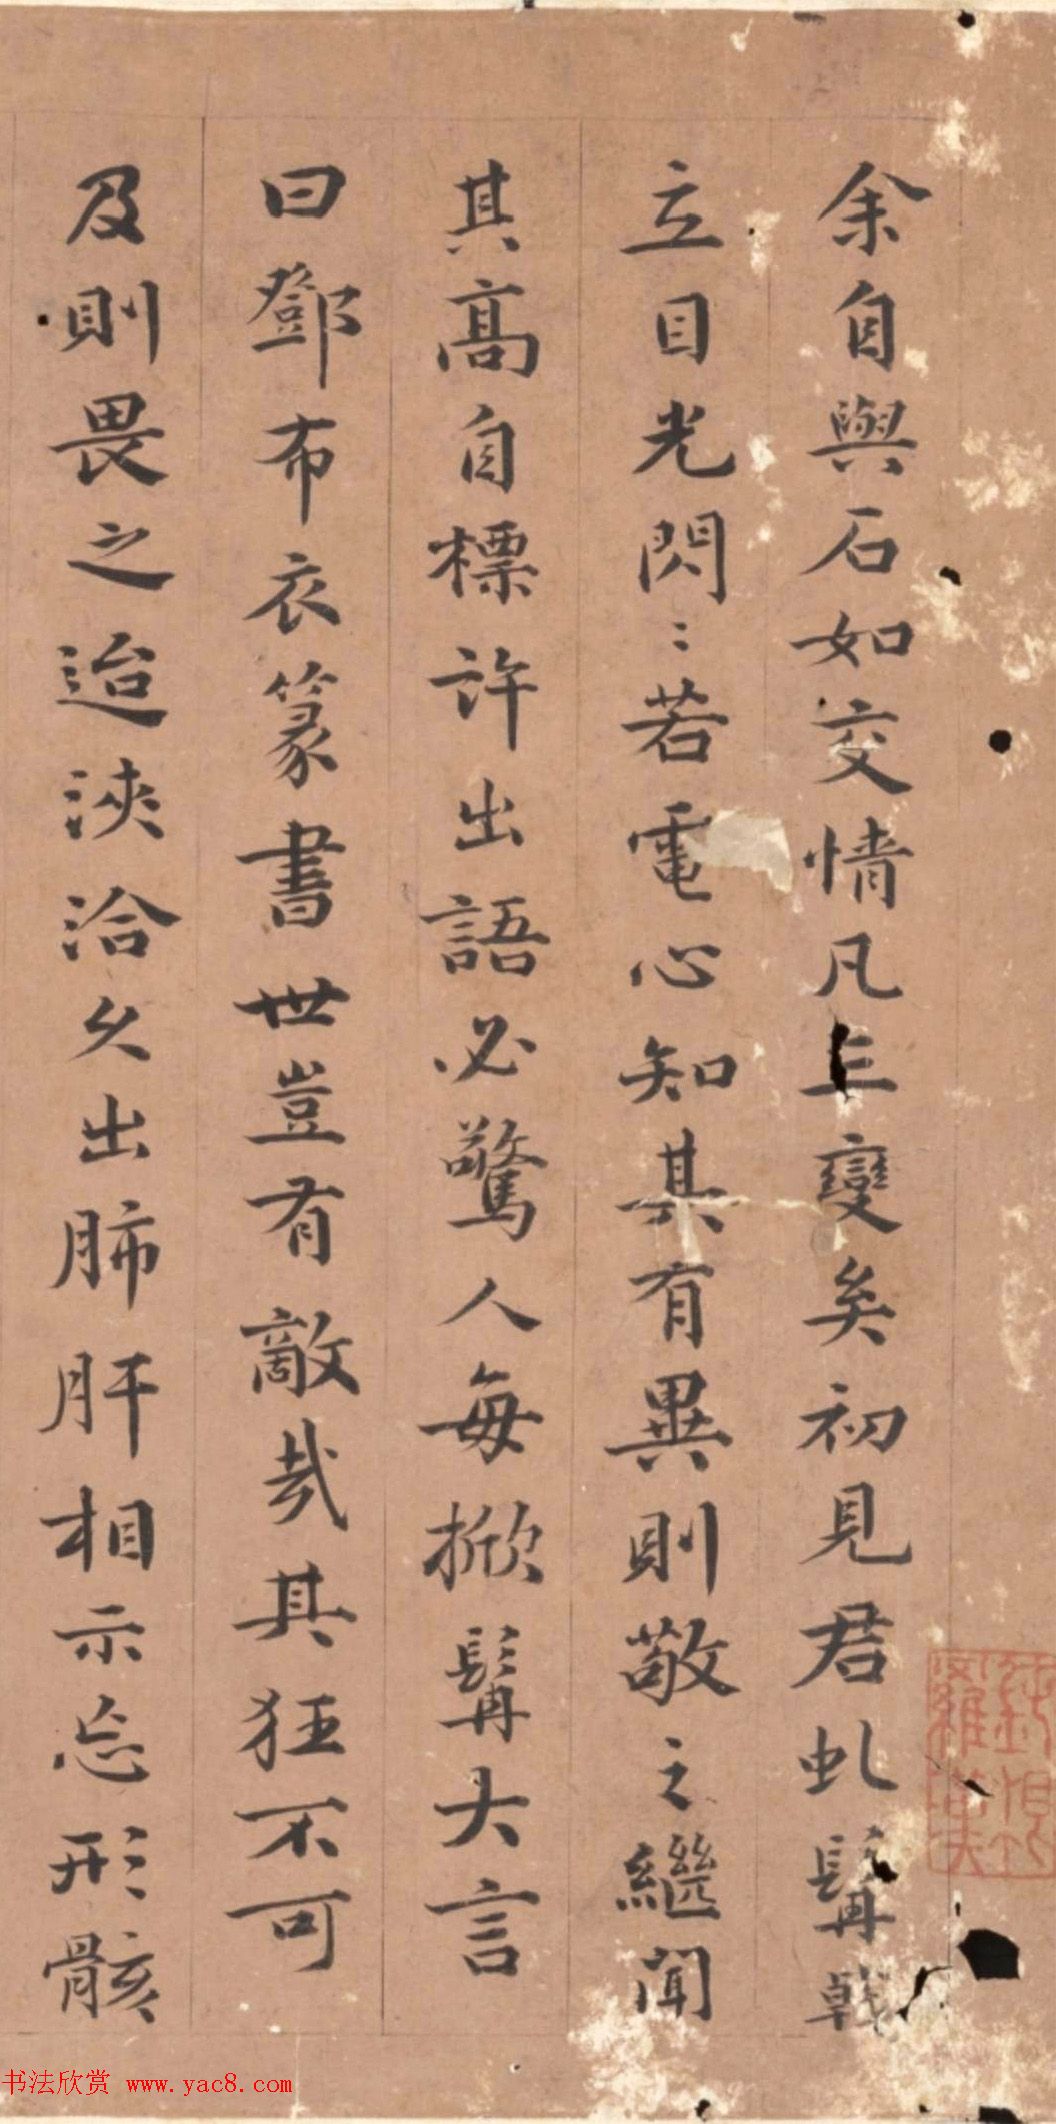 余自與石如交情凡三變矣初見君虬髯戟
立目光閃〻若電心知其有異則敬之繼聞
其高自標許出語必驚人每掀髯大言
曰鄧布衣篆書世豈有敵哉其狂不可
及則畏之迨浹洽久出肺肝相示忘形骸
书法欣赏 www.yac8.com